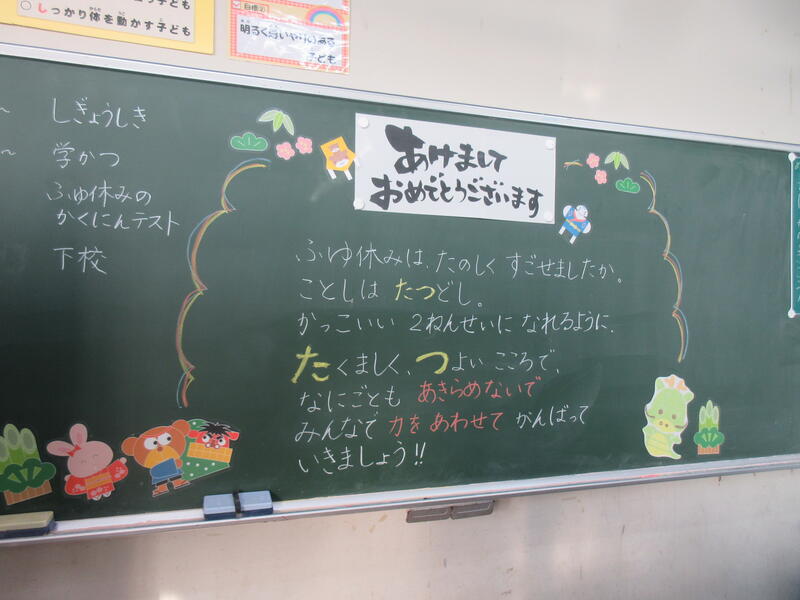 しっかり体を動かす子ども
明るく思いやりのある
子ども
しぎょうしき
学かつ
ふゆ休みの
かくにんテスト
下校
あけまして
おめでとうございます
ふゆ休みは、たのしく すごせましたか。
ことしは たつどし。
かっこいい 2ねんせいに なれるように、
たくましく、つよい こころで、
なにごとも あきらめないで
みんなで 力を あわせて がんばって
いきましょう!!